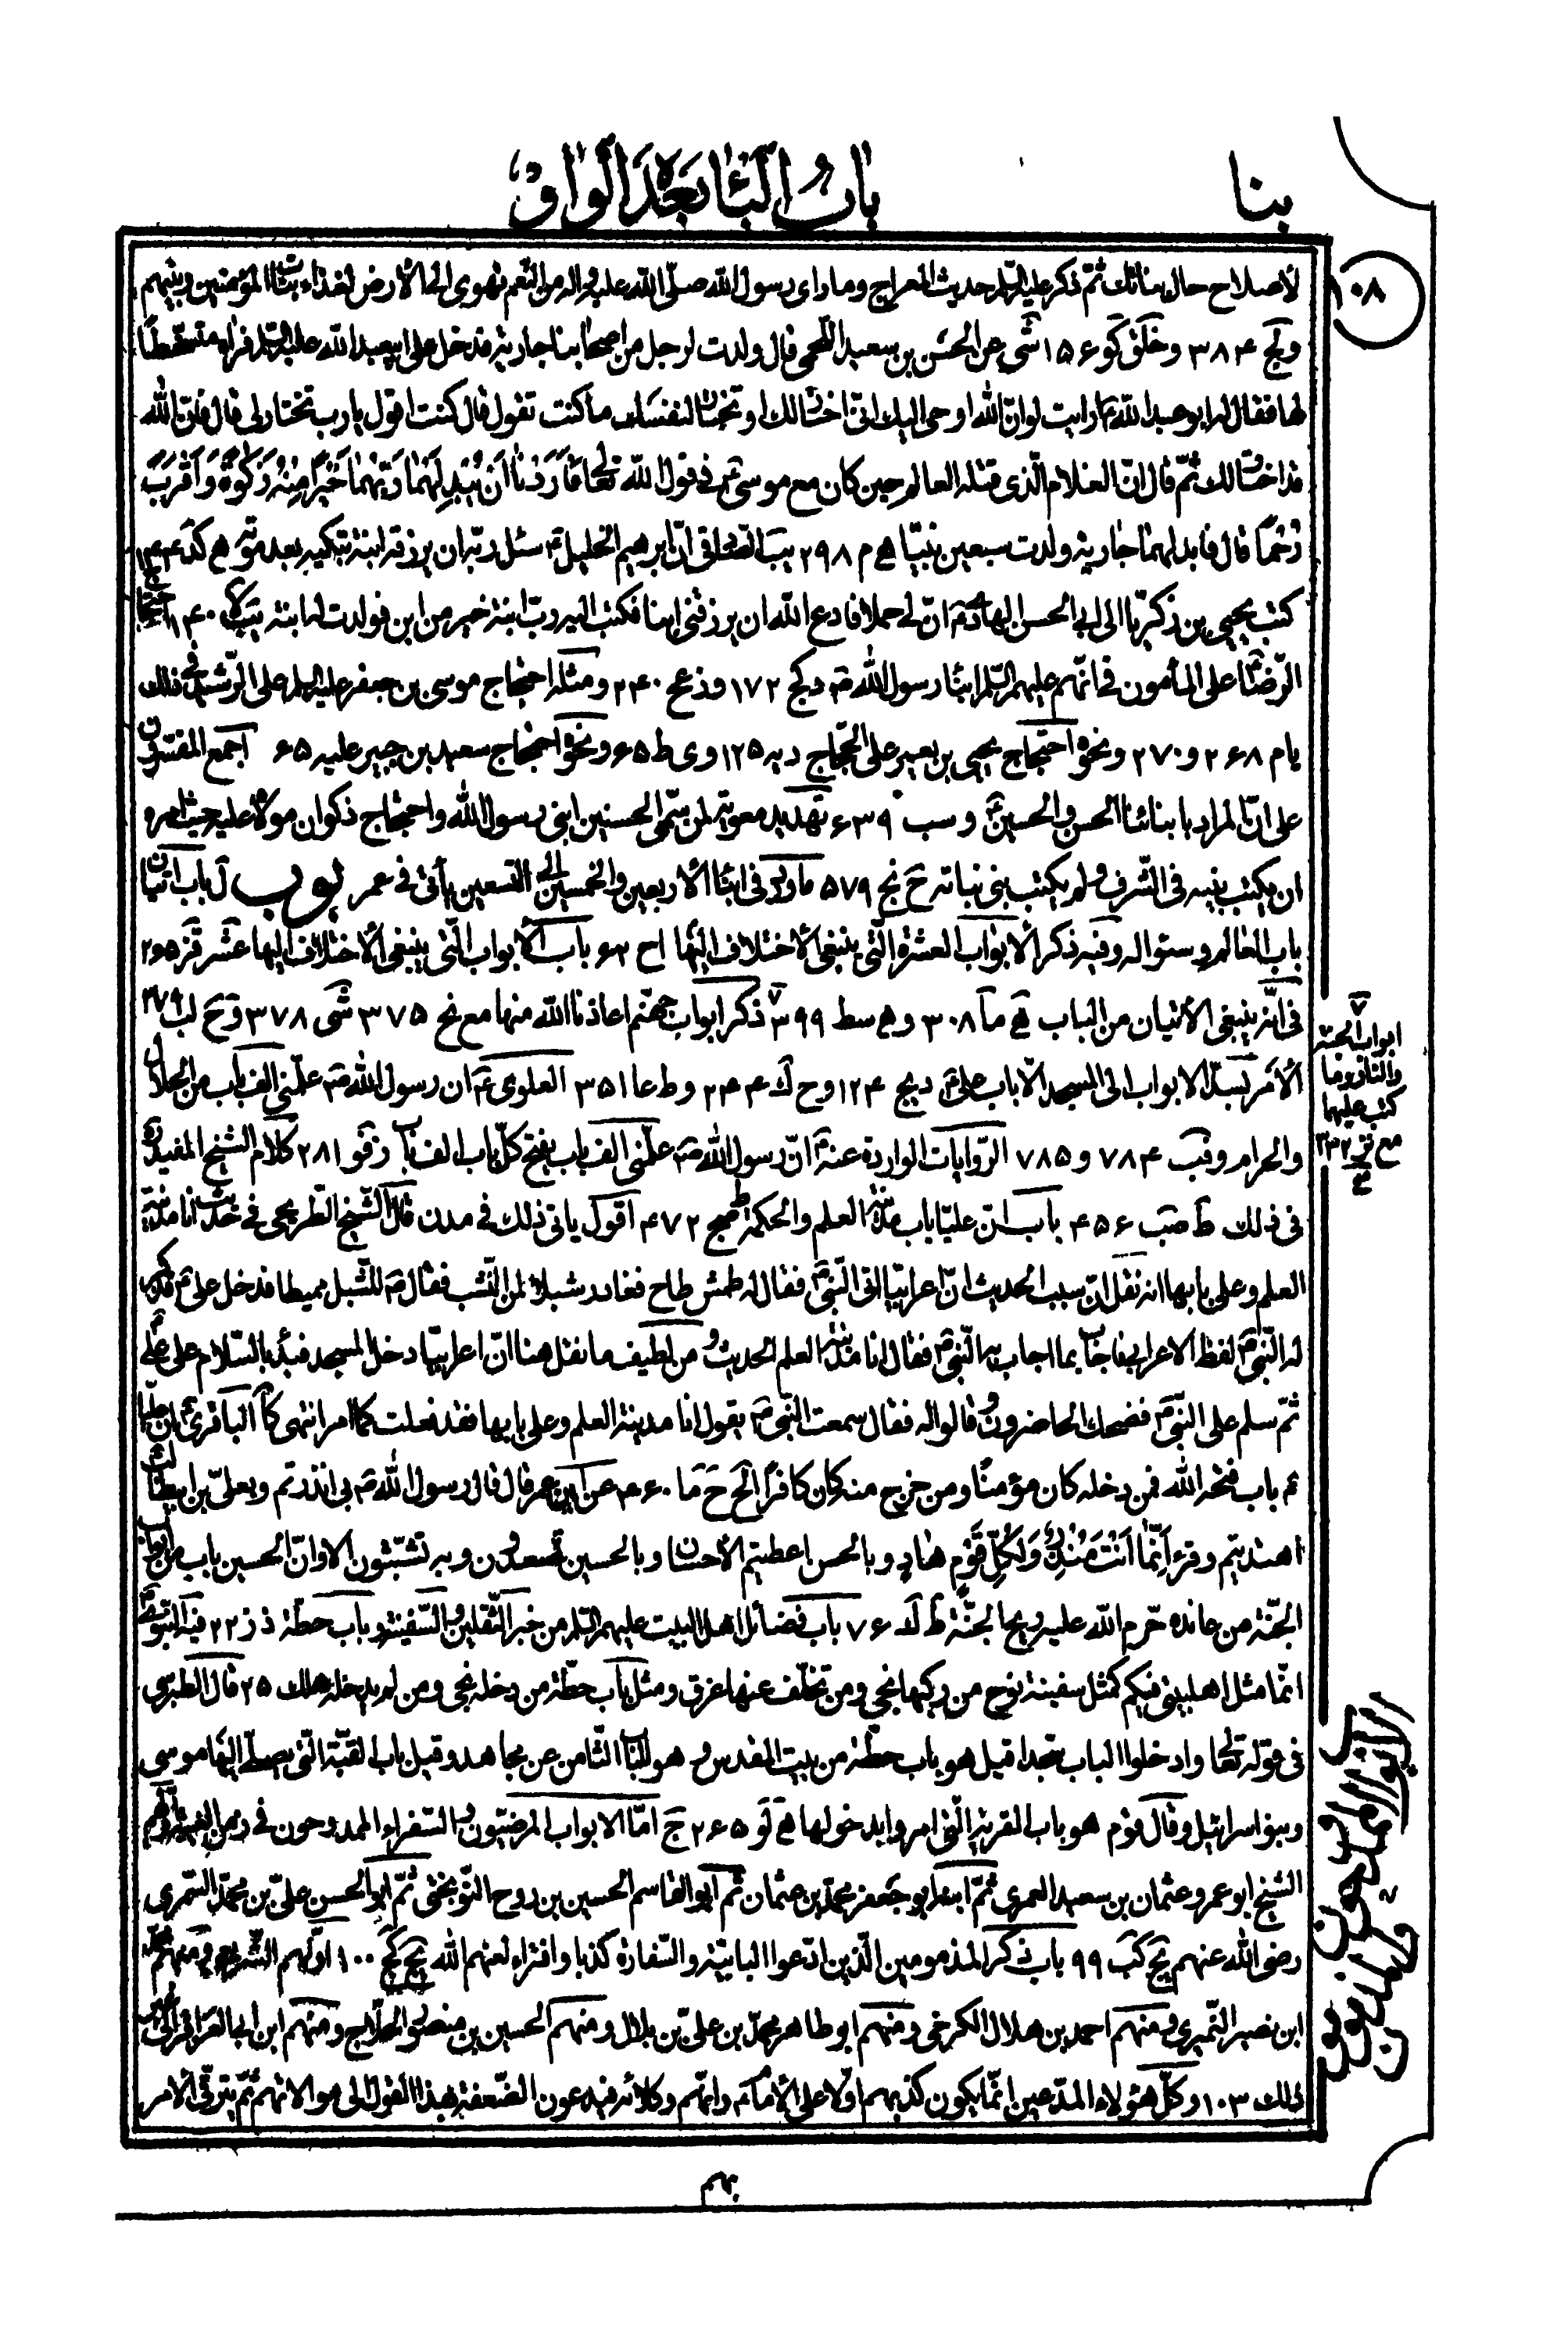 بنا
باب الباء بعد الواو
١٠٨
لأصلاح حال بناتك ثمّ ذكر عليه السّلم حديث المعراج وما رأى رسول الله صلّى الله عليه واله من النّعم تهوى الى الأرض لغذاء بنات المؤمنين وبنيهم
وكج ٣٨٤ وخلق كو ١٥۶ شى عن الحسن بن سعيد اللّخمى قال ولدت لرجل من اصحابنا جارية فدخل على ابيعبد الله عليه السّلم فراه متسخّطًا
لها فقال له ابو عبد الله ع ارايت لو انّ الله اوحى اليك انّى اختار لك او تختار لنفسك ما كنت تقول قال كنت اقول يا رب تختار لى قال فانّ الله
قد اختار لك ثمّ قال انّ الغلام الّذى قتله العالم حين كان مع موسى ع فى قول الله تعالى فَاَرَدْنا اَنْ يُبْدِلَهُما رَبُّهُما خَيْراً مِنْهُ زَكوةً وَاَقْرَبَ
رُحْمًا قال فابدلهما جارية ولدت سبعين نبيّا هـ م ٢٩٨ يب الصّادق انّ ابرهيم الخليل ع سئل ربّه ان يرزقه ابنة تبكيه بعد موته هـ كد ١۴۴
كتب يحيى بن زكريّا الى ابى الحسن الهادى ع انّ لى حملا فادع الله ان يرزقنى ابنا فكتب اليه ربّ ابنة خير من ابن فولدت له ابنة يب ١۴٠ احتجاج
الرّضا ع على المأمون فى انّهم عليهم السّلم ابناء رسول الله ص د كج ١٧٢ وز عج ٢۴٠ ومثله احتجاج موسى بن جعفر عليه السلم على الرّشيد فى ذلك
يا م ٢۶٨ و ٢٧٠ ونحوه احتجاج يحيى بن يعمر على الحجّاج د يه ١٢٥ وى ط ۶٥ ونحوه احتجاج سعيد بن جبير عليه ۶٥ اجمع المفسّرون
على انّ المراد بابنائنا الحسن والحسين ع وسب ۶٣٩ تهديد معوية لمن سمّى الحسنين ابنى رسول الله واحتجاج ذكوان مولاه عليه حيث امره
ان يكتب بنيه فى الشّرف ولم يكتب بنى بناته ح نج ٥٧٩ ما ورد فى ابناء الأربعين والخمسين الى التسعين يأتى فى عمر بوب ل باب اتيان
باب العالم وسؤاله وفيه ذكر الأبواب العشرة الّتى ينبغى الأختلاف اليها اح ۶٢ باب الأبواب الّتى ينبغى الأختلاف اليها عشر قز ٢۶٥
فى انّه ينبغى الأتيان من الباب هـ ما ٣٠٨ وهـ سط ٣٩٩ ذكر ابواب جهنّم اعاذنا الله منها مع نح ٣٧٥ شى ٣٧٨ وح لب ٣٧٩
الأمر بسدّ الابواب الى المسجد الّا باب على ع د يج ١٢۴ وح ك ٢۴۴ وط عا ٣٥١ العلوى ع ان رسول الله ص علّمنى الف باب من الحلال
والحرام وقب ٧٨۴ و ٧٨٥ الرّوايات الواردة عنه ع انّ رسول الله ص علّمنى الف باب يفتح كلّ باب الف باب ز قو ٢٨١ كلام الشيخ المفيد ره
فى ذلك ط صب ۴٥۶ باب انّ عليّا باب مدينة العلم والحكمة ط صج ۴٧٢ اقول ياتى ذلك فى مدن قال الشّيخ الطّريحى فى حديث انا مدينة
العلم وعلى بابها انه نقل انّ سبب الحديث انّ اعرابيّا اتى النّبى ص فقال له طمش طاح فغادر شبلا لمن النّشب فقال ص للشّبل مميطا فدخل على ع فذكر
له النّبى ص لفظ الاعرابى فاجاب بما اجاب به النّبى ص فقال انا مدينة العلم الحديث ومن لطيف ما نقل هنا انّ اعرابيّا دخل المسجد فبدأ بالسّلام على على ع
ثمّ سلم على النّبى ص فضحك الحاضرون وقالوا له فقال سمعت النّبى ص يقول انا مدينة العلم وعلى بابها فقد فعلت كما امر انتهى كا الباقرى ع ان عليّا
ع باب فتحه الله فمن دخله كان مؤمنًا ومن خرج منه كان كافرًا الخ ح ما عن ابن عمر قال قال رسول الله ص بى انذرتم وبعلىّ بن ابيطالب
اهتديتم وقرء اِنَّما اَنْتَ مُنْذِرٌ وَلِكُلِّ قَوْمٍ هادٍ وبالحسن اعطيتم الأحسان وبالحسين تسعدون وبه تشبّثون الا وانّ الحسين باب من ابواب
الجنّة من عانده حرّم الله عليه ريح الجنّة ط لا ٧۶ باب فضائل اهل البيت عليهم السّلم من خبر الثّقلين والسّفينة وباب حطّة ز ز ٢٢ فيه النبوى ص
انّما مثل اهلبيتى فيكم كمثل سفينة نوح من ركبها نجى ومن تخلّف عنها غرق ومثل باب حطّة من دخله نجى ومن لم يدخله هلك ٢٥ قال الطبرسى
فى قوله تعالى وادخلوا الباب سجدا قيل هو باب حطّة من بيت المقدس وهو الباب الثّامن عن مجاهد وقيل باب القبّة الّتى يصلى اليها موسى
وبنو اسرائيل وقال قوم هو باب القرية الّتى امروا بدخولها هـ لو ٢۶٥ ج امّا الابواب المرضيّون والسّفراء الممدوحون فى زمن الغيبة فاوّلهم
الشيخ ابو عمرو عثمان بن سعيد العمرى ثمّ ابنه ابو جعفر محمّد بن عثمان ثمّ ابو القاسم الحسين بن روح النّوبختى ثمّ ابو الحسن علىّ بن محمّد السّمرى
رضى الله عنهم يج كب ٩٩ باب ذكر المذمومين الّذين ادّعوا البابيّة والسّفارة كذبا وافتراء لعنهم الله يج كج ١٠٠ اوّلهم الشّريعى ومنهم محمّد
ابن نصير النّميرى ومنهم احمد بن هلال الكرخى ومنهم ابو طاهر محمّد بن علىّ بن بلال ومنهم الحسين بن منصور الحلّاج ومنهم ابن ابى العزاقر
ذلك ١٠٣ وكلّ هؤلاء المدّعين انّما يكون كذبهم اوّلا على الأمام ع وانّهم وكلائه فيدعون الضّعفة بهذا القول الى موالاتهم ثمّ يترقّى الامر
ابواب الجنّة
والنّار وما
كتب عليها
مع نز ٣٣٢
الابواب الممدوحون والمذمومون
بهم